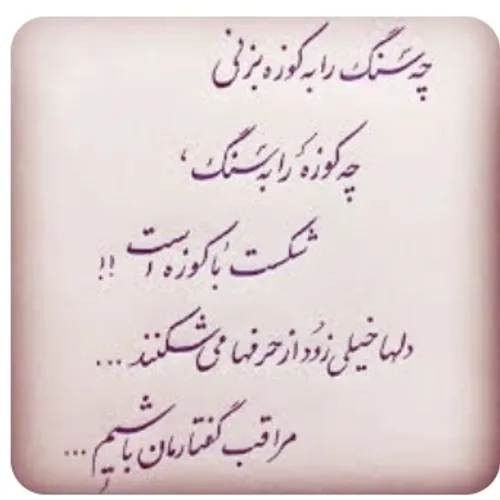 چه سنگ را به کوزه بزنی
چه کوزه را به سنگ ،
شکست با کوزه است !!
دلها خیلی زود از حرفها می شکنند ...
مراقب گفتارمان باشیم ...